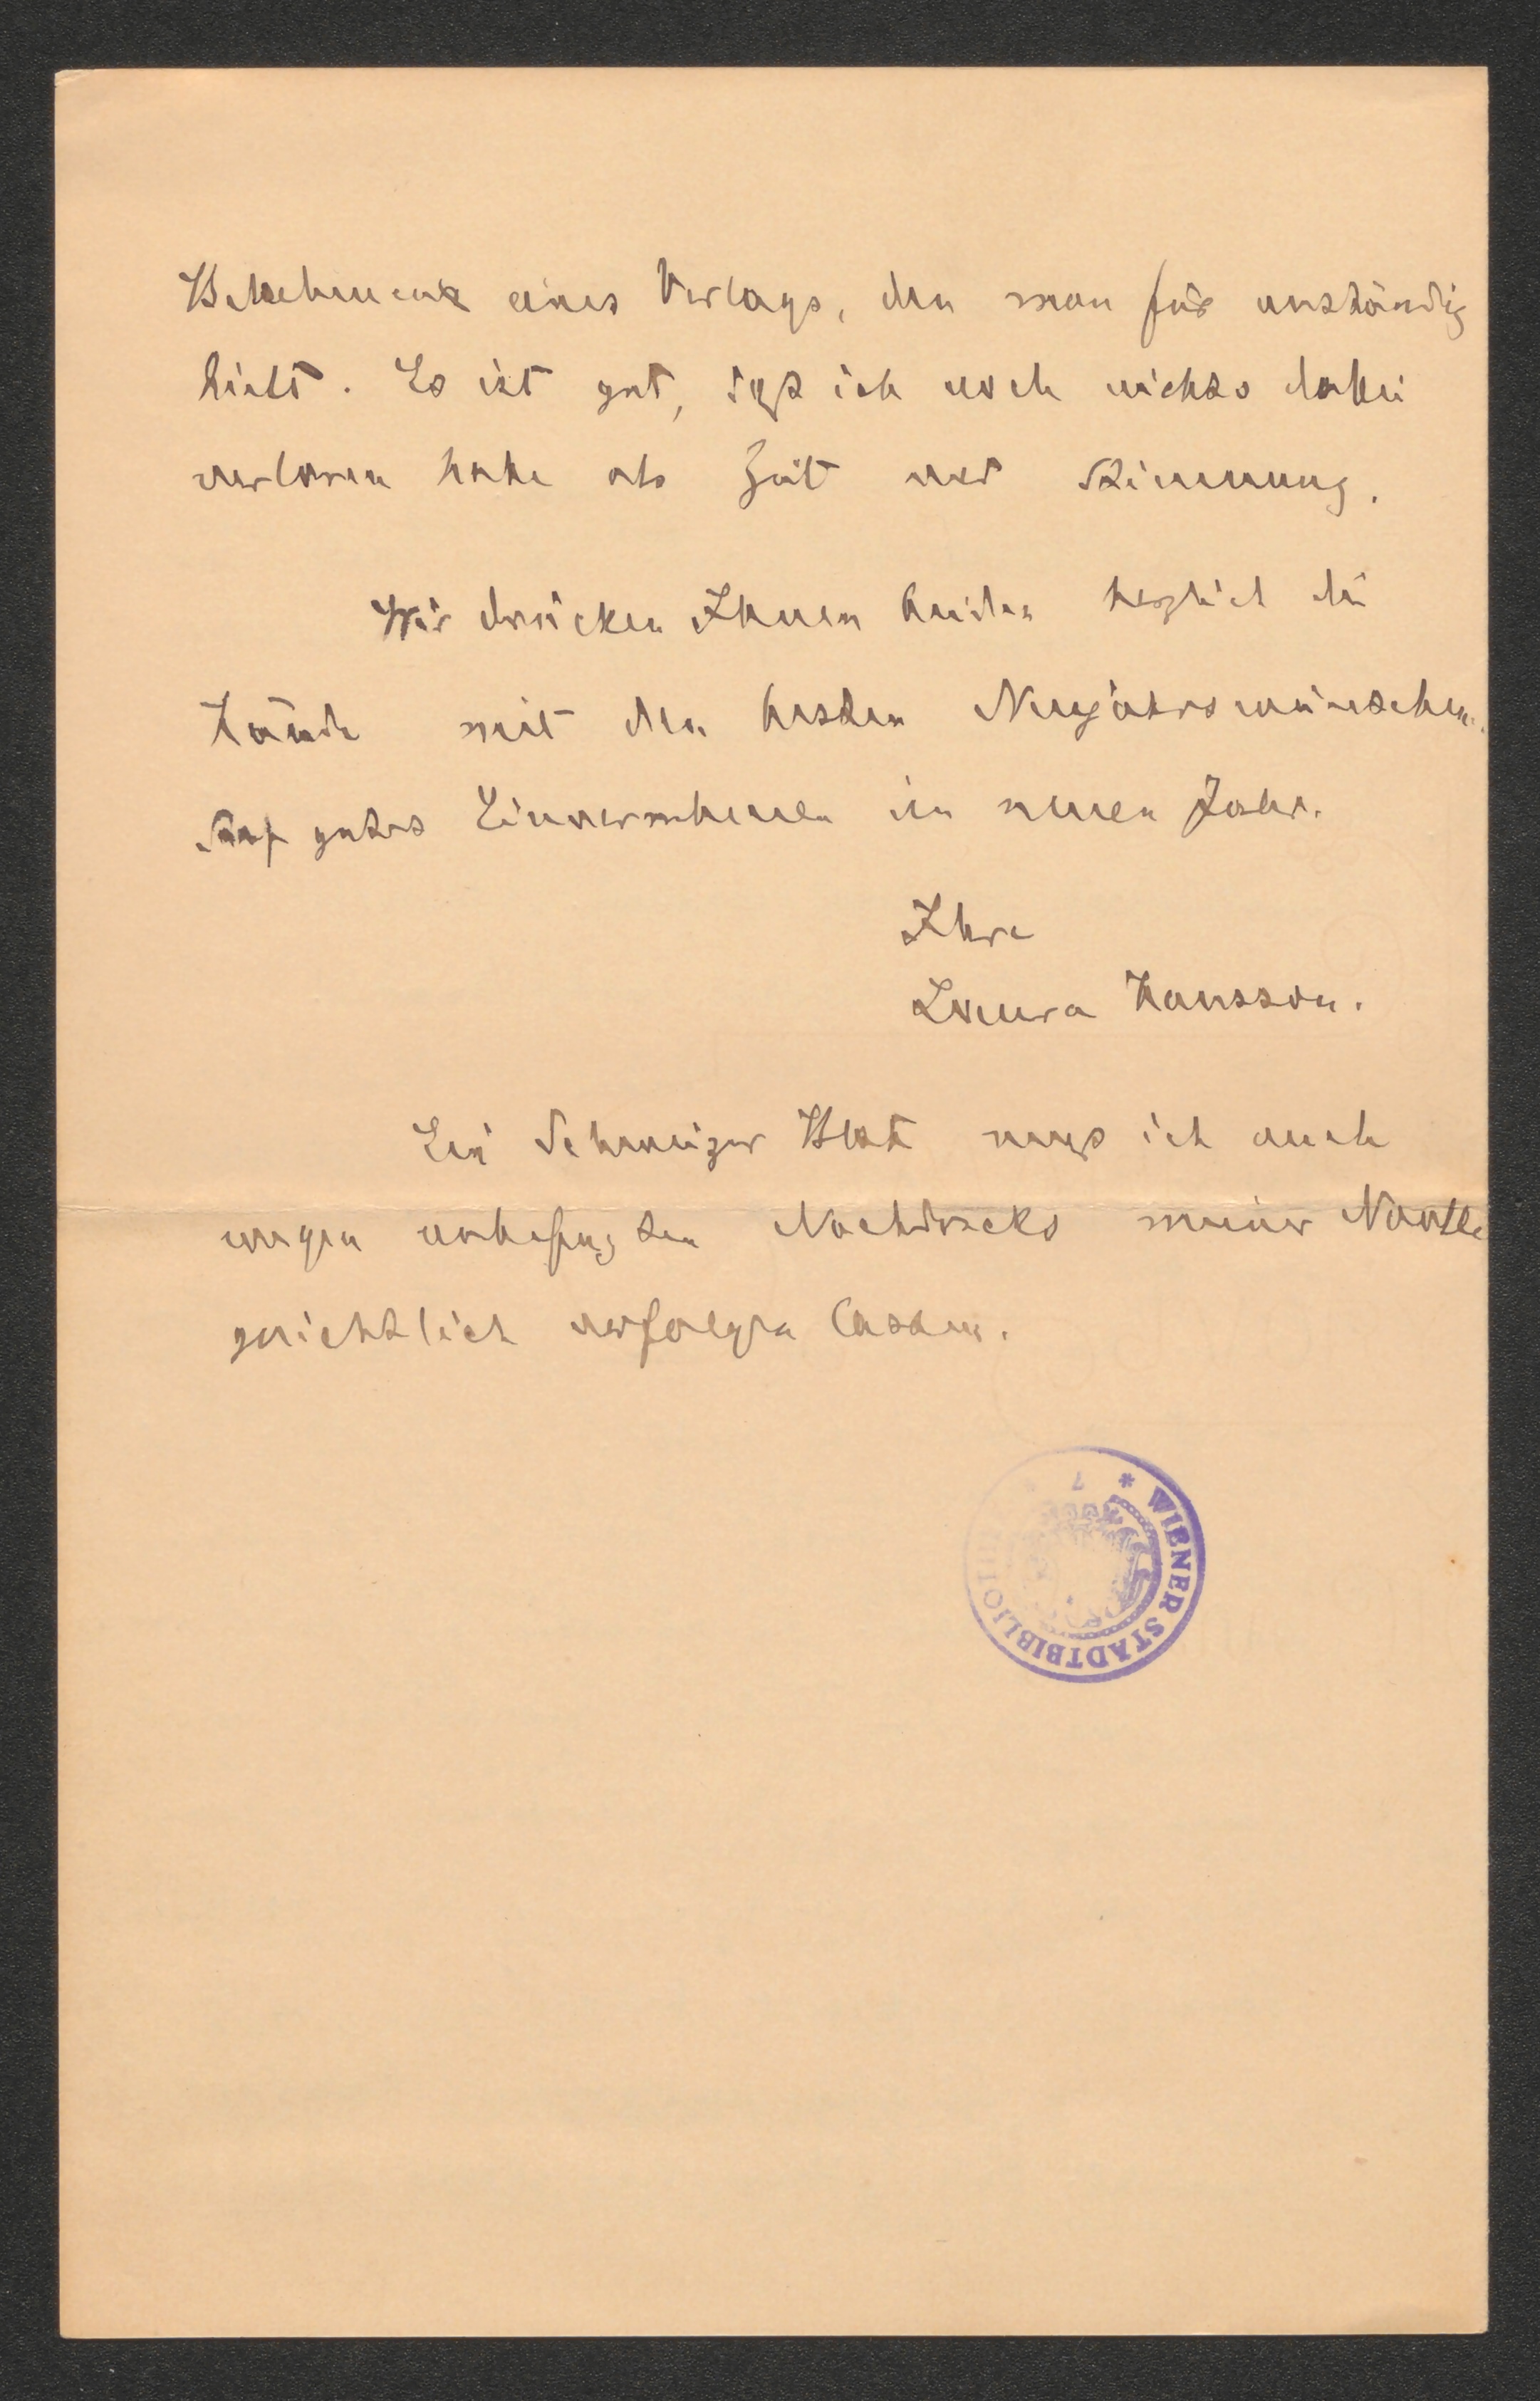 Benehmens eines Verlags, den man für anständig
hielt. Es ist gut, daß ich noch nichts dabei
verloren habe als Zeit und Stimmung.
Wir drücken Ihnen beiden herzlich die
Hände mit den besten Neujahrswünschen.
Auf gutes Einvernehmen im neuen Jahr.
Ihre
Laura Hansson.
Ein Schweizer Blatt muß ich auch
wegen unbefugten Nachdrucks meiner Novelle
gerichtlich verfolgen lassen.
* WIENER STADTBIBLIOTHEK
7